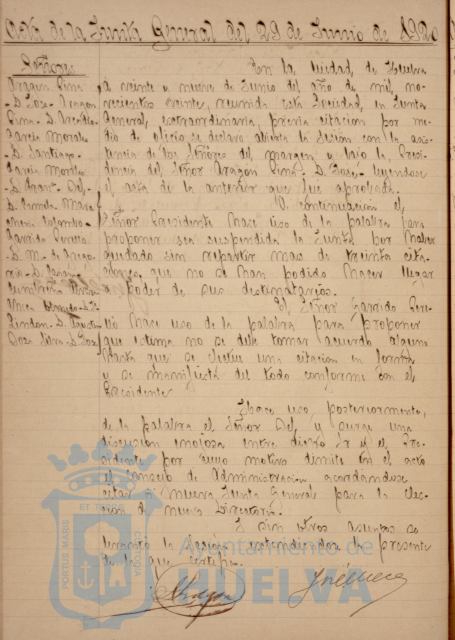 Acta de la Junta General del 29 de Junio de 1920
Señores
Aragon Pina-
- D. Jose- Aragon
Pina- D. Arcadio-
Garcia Morales
- D. Santiago-
Garcia Morales
- D. Del-
D.
Garrido Perello
- D. M. de
- D.
- D. Agustin
- D. Jose
En la ciudad de Huelva
a veinte y nueve de Junio del año de mil no-
vecientos veinte, reunida esta Sociedad, en Junta
General, extraordinaria, previa citacion por me-
dio de oficio se declaro abierta la sesion con la asis-
tencia de los Señores del margen y bajo la Presi-
dencia del Señor Aragon Pina D. Jose- leyendose
el acta de la anterior que fue aprobada.
A continuacion el
Señor Presidente hace uso de la palabra para
proponer sea suspendida la Junta por haber
quedado sin repartir mas de treinta cita-
ciones que no se han podido hacer llegar
a poder de sus destinatarios.
El Señor Garrido Pere-
llo hace uso de la palabra para proponer
que estima no se debe tomar acuerdo alguno
hasta que se efectue una citacion en forma
y se manifiesta del todo conforme con el
Presidente
Hace uso posteriormente,
de la palabra el Señor Del, y surge una
discusion enojosa entre dicho Sr y el Pre-
sidente por cuyo motivo dimite en el acto
el Consejo de Administracion acordandose
citar a nueva Junta General para la elec-
cion de nuevo Directorio.
Y sin otros asuntos se
levanto la sesion extendiendose la presente
de la que certifico.
PORTUS MARIS ET TERRAE CUSTODIA
Ayuntamiento de
HUELVA